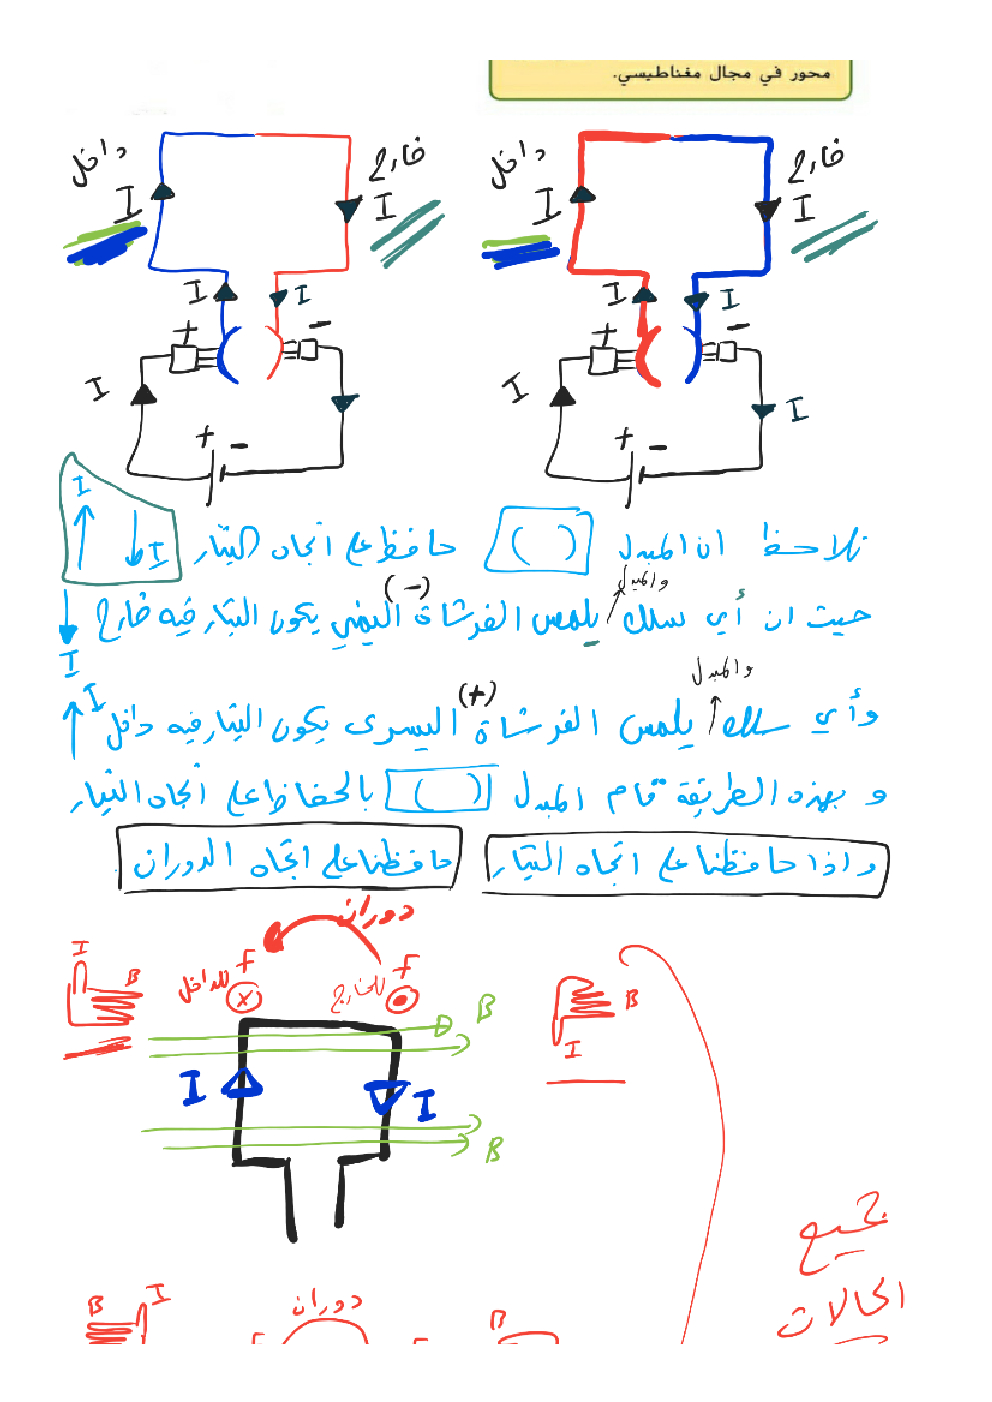 محور في مجال مغناطيسي.
داخل I خارج I
داخل I خارج I
I I + − I
I I + − I
+ −
I + − I
I
I
نلاحظ ان المبدل ( ) حافظ على اتجاه التيار
والمبدل (−)
حيث ان أي سلك يلمس الفرشاة اليمنى يكون التيار فيه خارج
I
والمبدل (+) I
وأي سلك يلمس الفرشاة اليسرى يكون التيار فيه داخل
و بهذه الطريقة قام المبدل ( ) بالحفاظ على اتجاه التيار
واذا حافظنا على اتجاه التيار حافظنا على اتجاه الدوران
دوران
I B للداخل F للخارج F B B
I
I I
B
جميع
الحالات
B I دوران B
F F